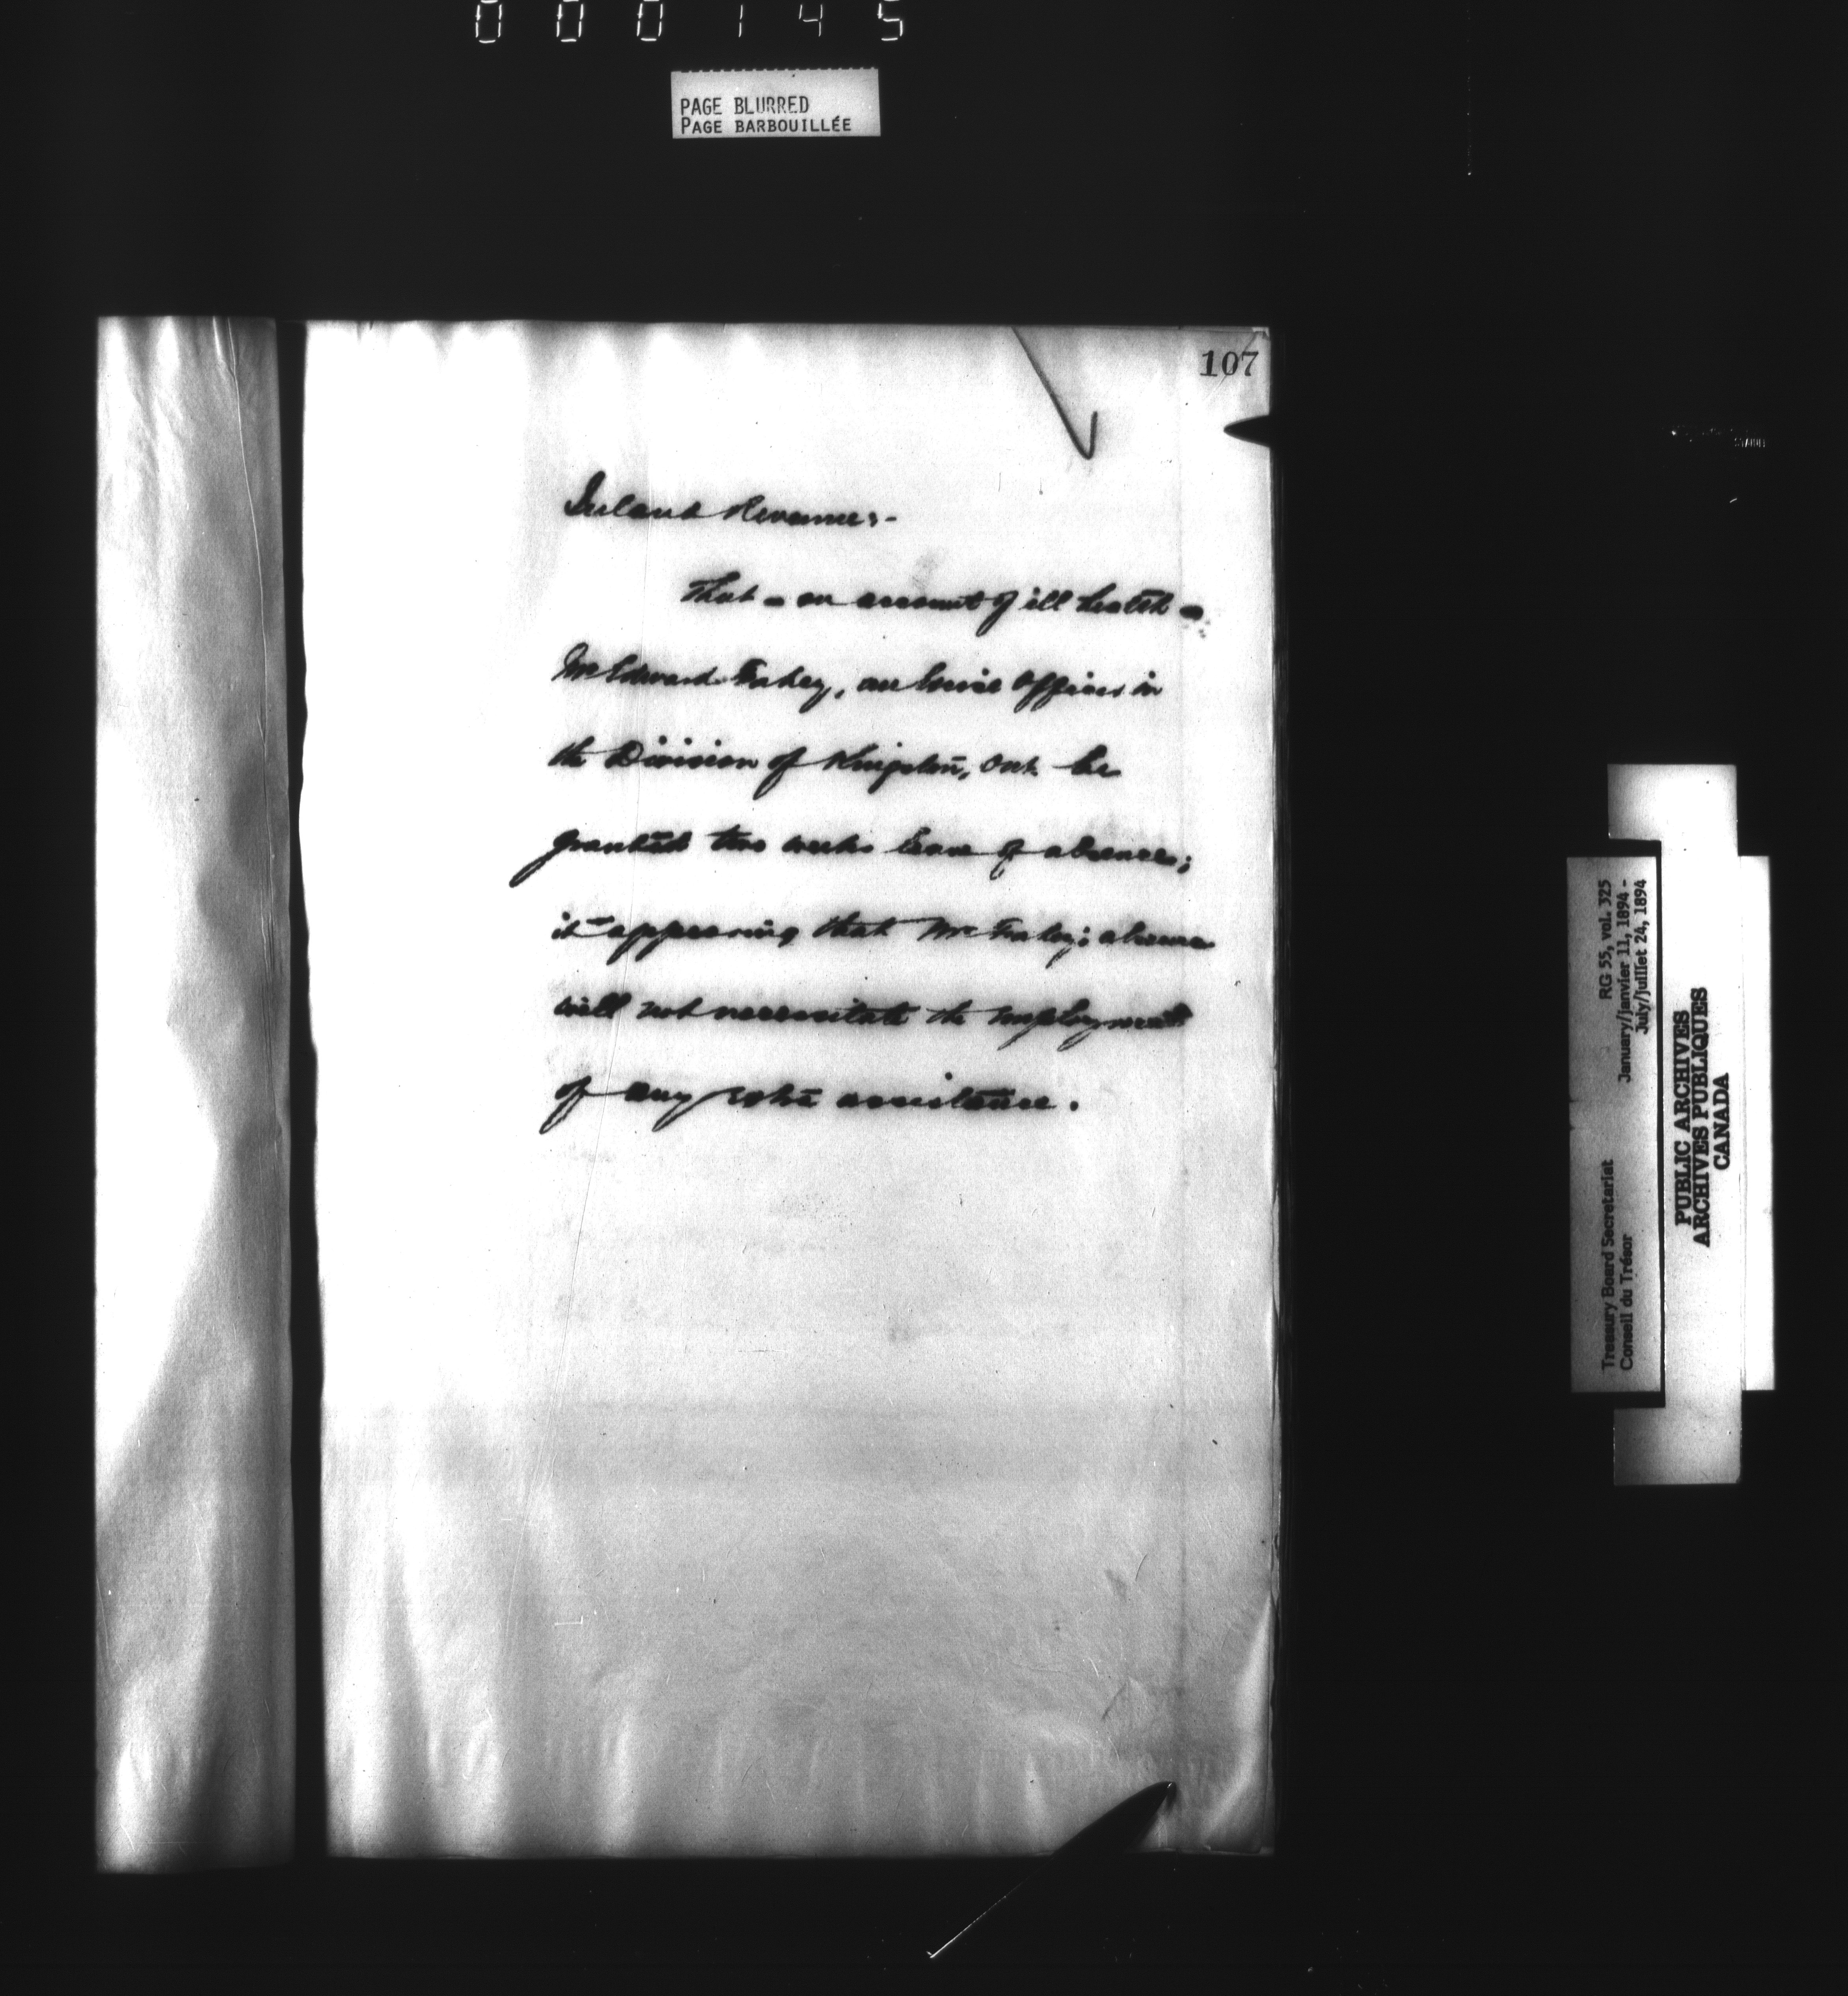 000145
PAGE BLURRED
PAGE BARBOUILLÉE
107
Inland Revenue:-
That - on account of ill health -
Mr Edward Fahey, an Excise Officer in
the Division of Kingston, Ont. be
granted two weeks leave of absence;
it appearing that Mr Fahey's absence
will not necessitate the employment
of any extra assistance.
RG 55, vol. 325
January/janvier 11, 1894 -
July/juillet 24, 1894
Treasury Board Secretariat
Conseil du Trésor
PUBLIC ARCHIVES
ARCHIVES PUBLIQUES
CANADA